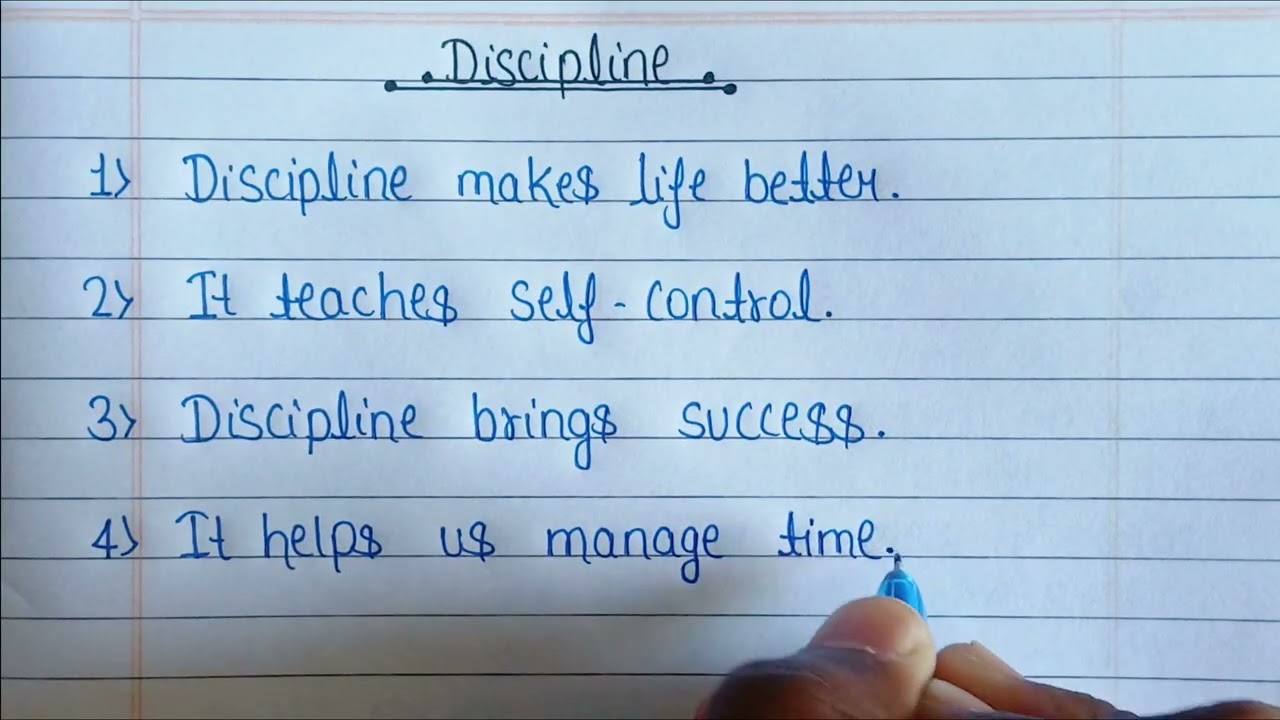 Discipline
1) Discipline makes life better.
2) It teaches self-control.
3) Discipline brings success.
4) It helps us manage time.